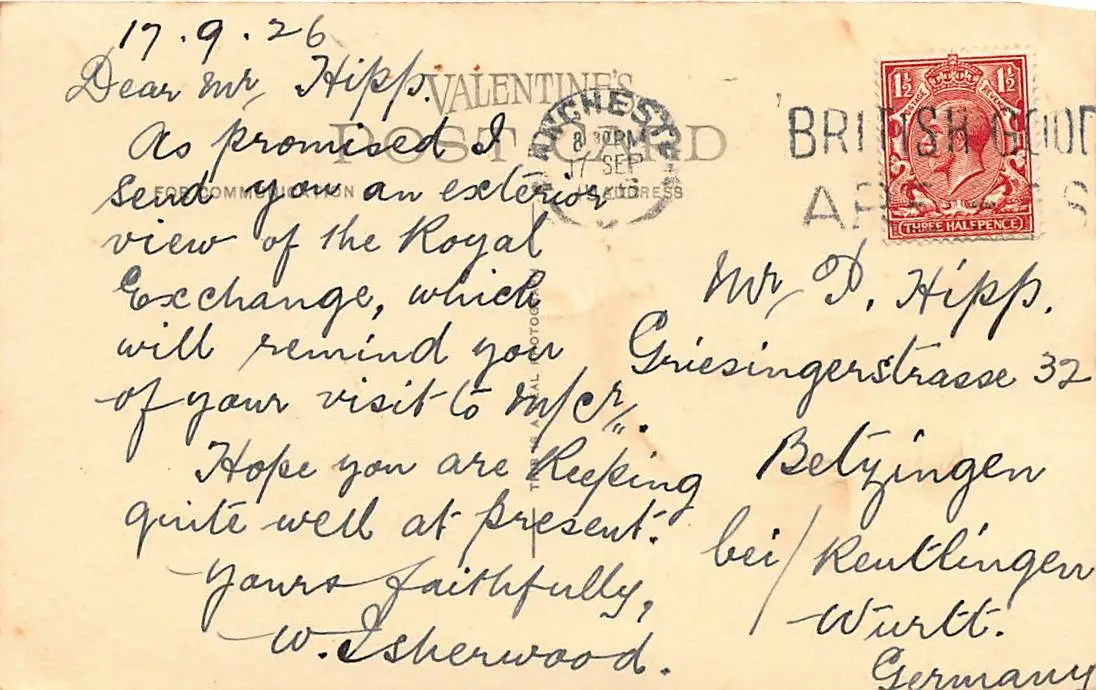 17.9.26
Dear Mr, Hipp.
As promised I
send you an exterior
view of the Royal
Exchange, which
will remind you
of your visit to M/Cr.
Hope you are keeping
quite well at present.
Yours faithfully,
W. Isherwood.
VALENTINE'S
POST CARD
FOR COMMUNICATION
ADDRESS
THIS IS A REAL PHOTOGRAPH
MANCHESTER
8 PM
17 SEP
BRITISH GOOD
1½ 1½
POSTAGE REVENUE
THREE HALFPENCE
Mr P. Hipp.
Griesingerstrasse 32
Betzingen
bei/Reutlingen
Württ.
Germany